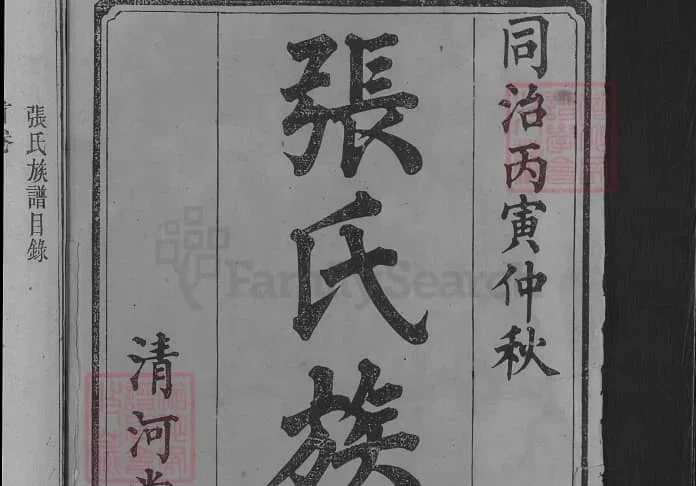 同治丙寅仲秋
張氏族
清河堂
張氏族譜目錄
FamilySearch